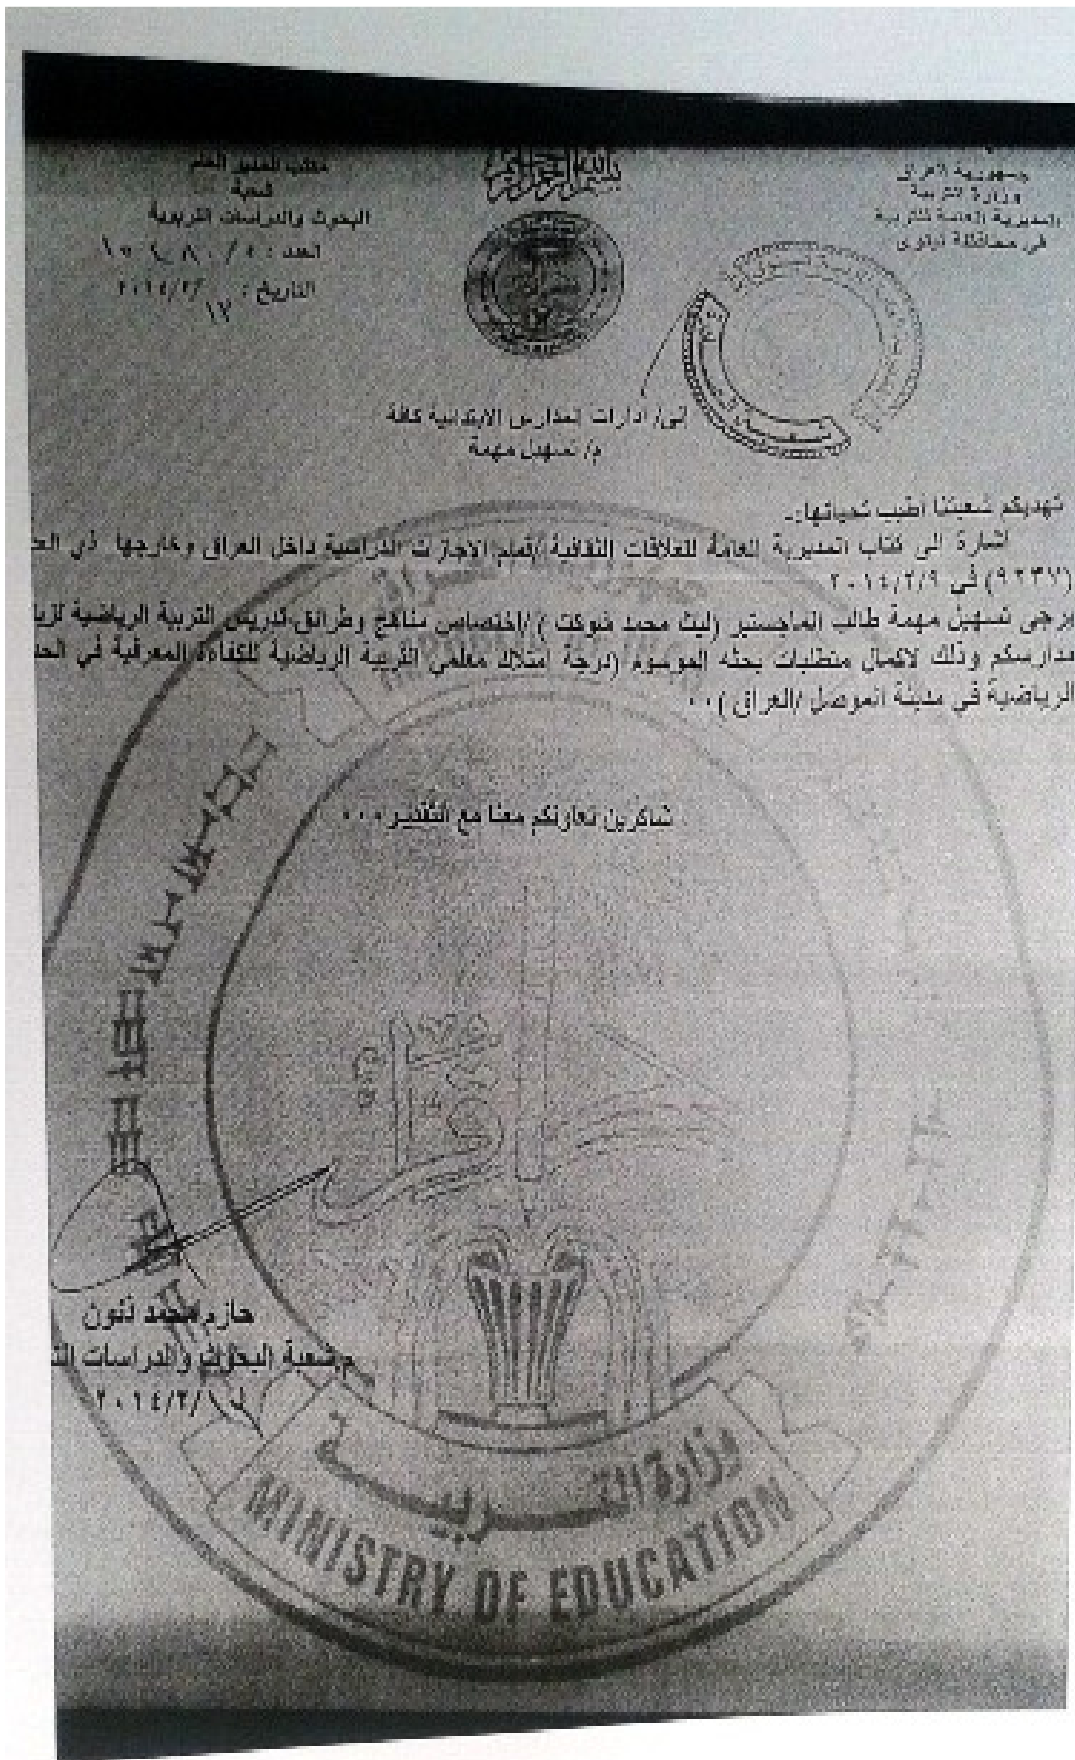 جمهورية العراق
وزارة التربية
المديرية العامة للتربية
في محافظة نينوى
بسم الله الرحمن الرحيم
مكتب المدير العام
شعبة
البحوث والدراسات التربوية
العدد : ٤ /
التاريخ : ١٢/ ٢ /٢٠١٤
الى/ ادارات المدارس الابتدائية كافة
م/ تسهيل مهمة
تهديكم شعبتنا اطيب تحياتها:-
اشارة الى كتاب المديرية العامة للعلاقات الثقافية /قسم الاجازات الدراسية داخل العراق وخارجها ذي
(٩٢٣٧) في ٢٠١٤/٢/٩
يرجى تسهيل مهمة طالب الماجستير (ليث محمد شوكت )/اختصاص مناهج وطرائق تدريس التربية الرياضية
مدارسكم وذلك لاكمال متطلبات بحثه الموسوم (درجة امتلاك معلمي التربية الرياضية للكفاءة المعرفية في
الرياضية في مدينة الموصل /العراق )٠٠
شاكرين تعاونكم معنا مع التقدير٠٠٠
حازم محمد ذنون
م.شعبة البحوث والدراسات
/٢/٢٠١٤
وزارة التربية
MINISTRY OF EDUCATION